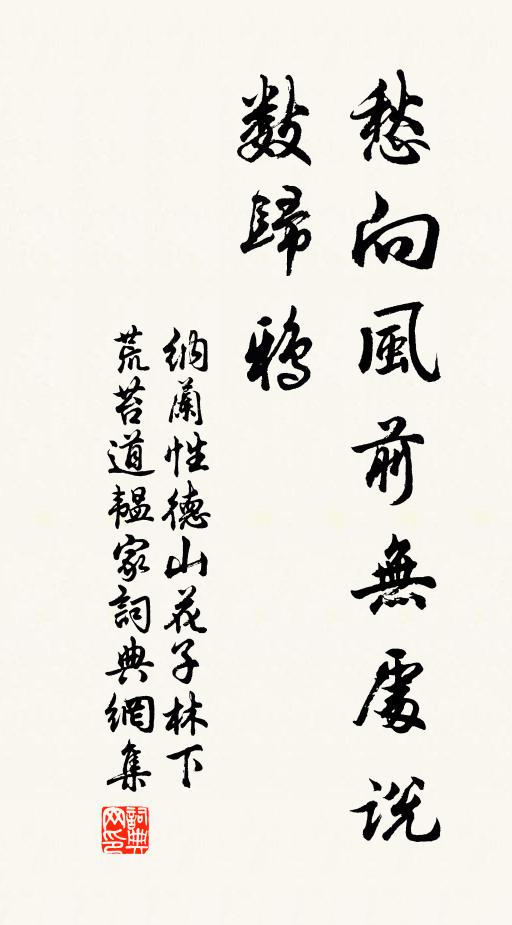 愁向風前無處說
數歸鴉
納蘭性德山花子林下
荒苔道韞家詞典網集
詞典网印